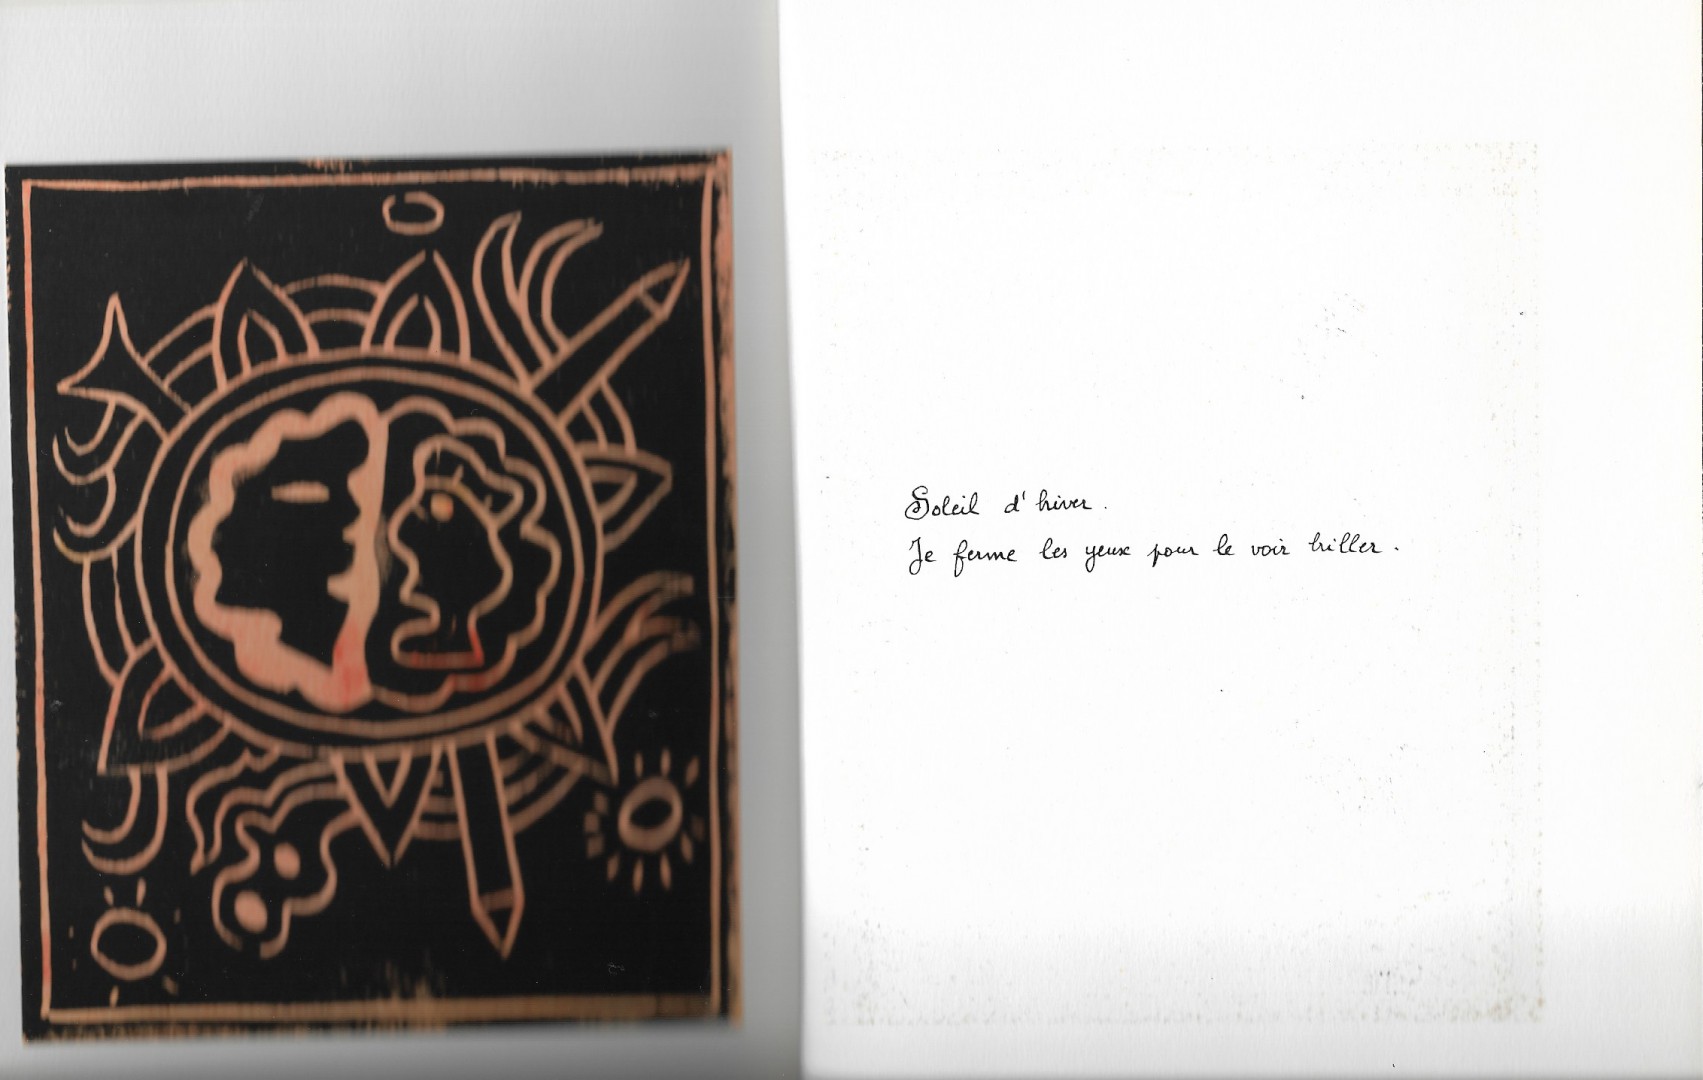 Soleil d'hiver.
Je ferme les yeux pour le voir briller.